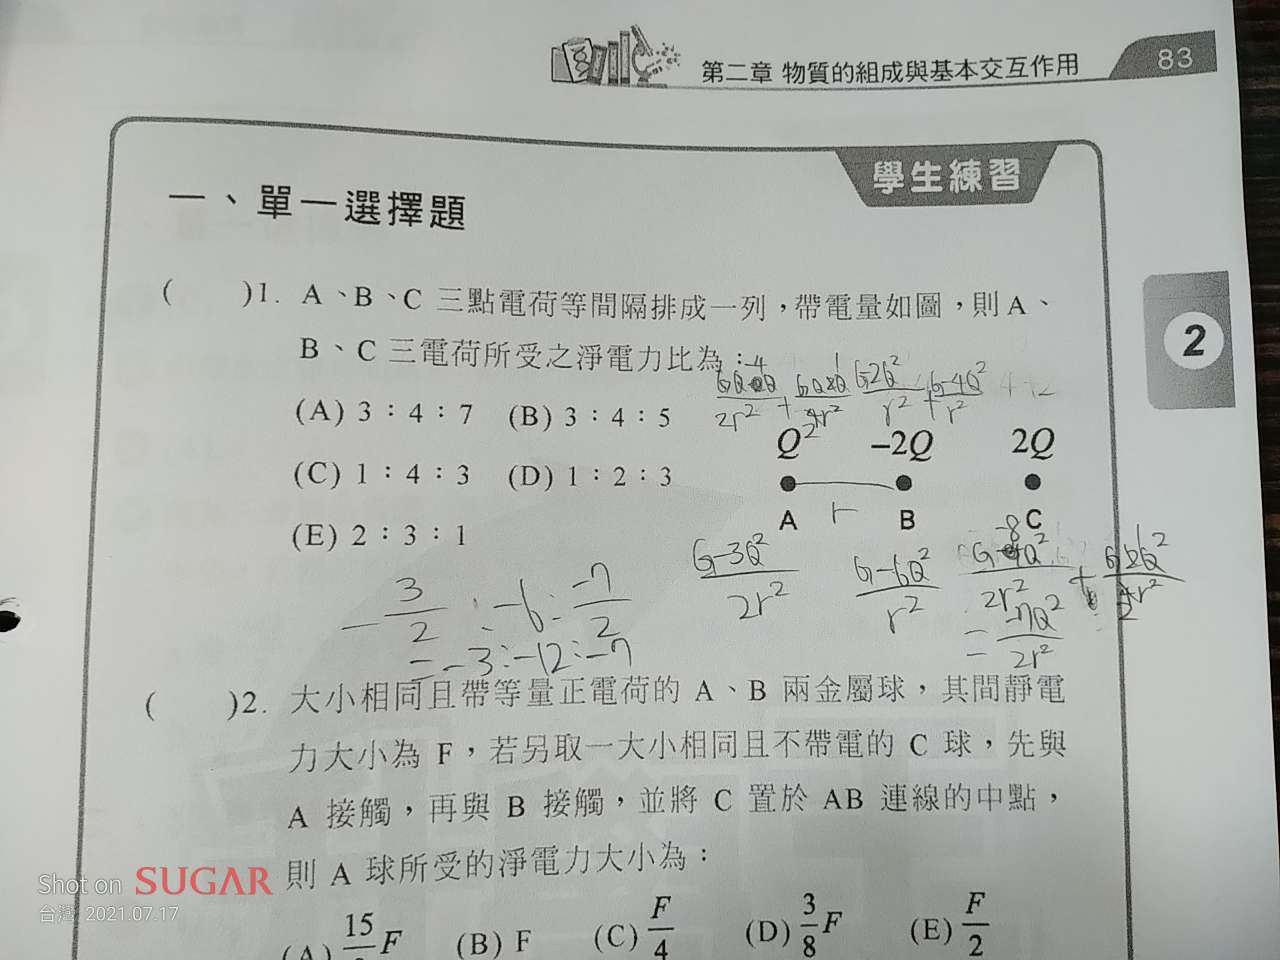 第二章 物質的組成與基本交互作用 83
學生練習
一、單一選擇題
2
( )1. A、B、C 三點電荷等間隔排成一列,帶電量如圖,則A、
B、C 三電荷所受之淨電力比為:
(A) 3:4:7 (B) 3:4:5
(C) 1:4:3 (D) 1:2:3
(E) 2:3:1
G2Q² / r² + G-4Q² / r²
Q -2Q 2Q
A r B C
G-3Q² / 2r² G-6Q² / r²
= -7Q² / 2r²
-3/2 : -6 : -7/2
= -3:-12:-7
( )2. 大小相同且帶等量正電荷的 A、B 兩金屬球,其間靜電
力大小為 F,若另取一大小相同且不帶電的 C 球,先與
A 接觸,再與 B 接觸,並將 C 置於 AB 連線的中點,
則 A 球所受的淨電力大小為:
(B) F (C) F/4 (D) 3/8 F (E) F/2
Shot on SUGAR
台灣 2021.07.17